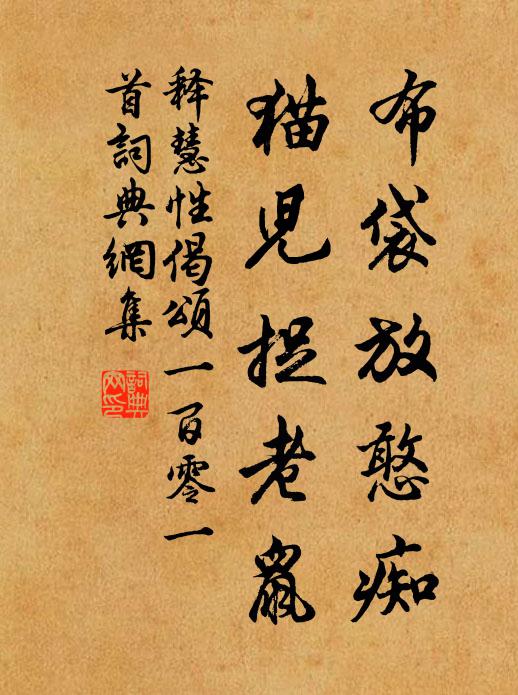 布袋放憨痴
猫児捉老鼠
释慧性偈頌一百零一
首詞典網集
詞典
网印